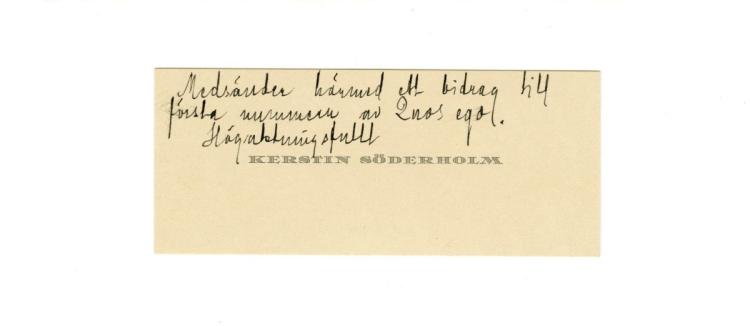 Medsänder härmed ett bidrag till
första nummern av Quos ego!.
Högaktningsfullt
KERSTIN SÖDERHOLM